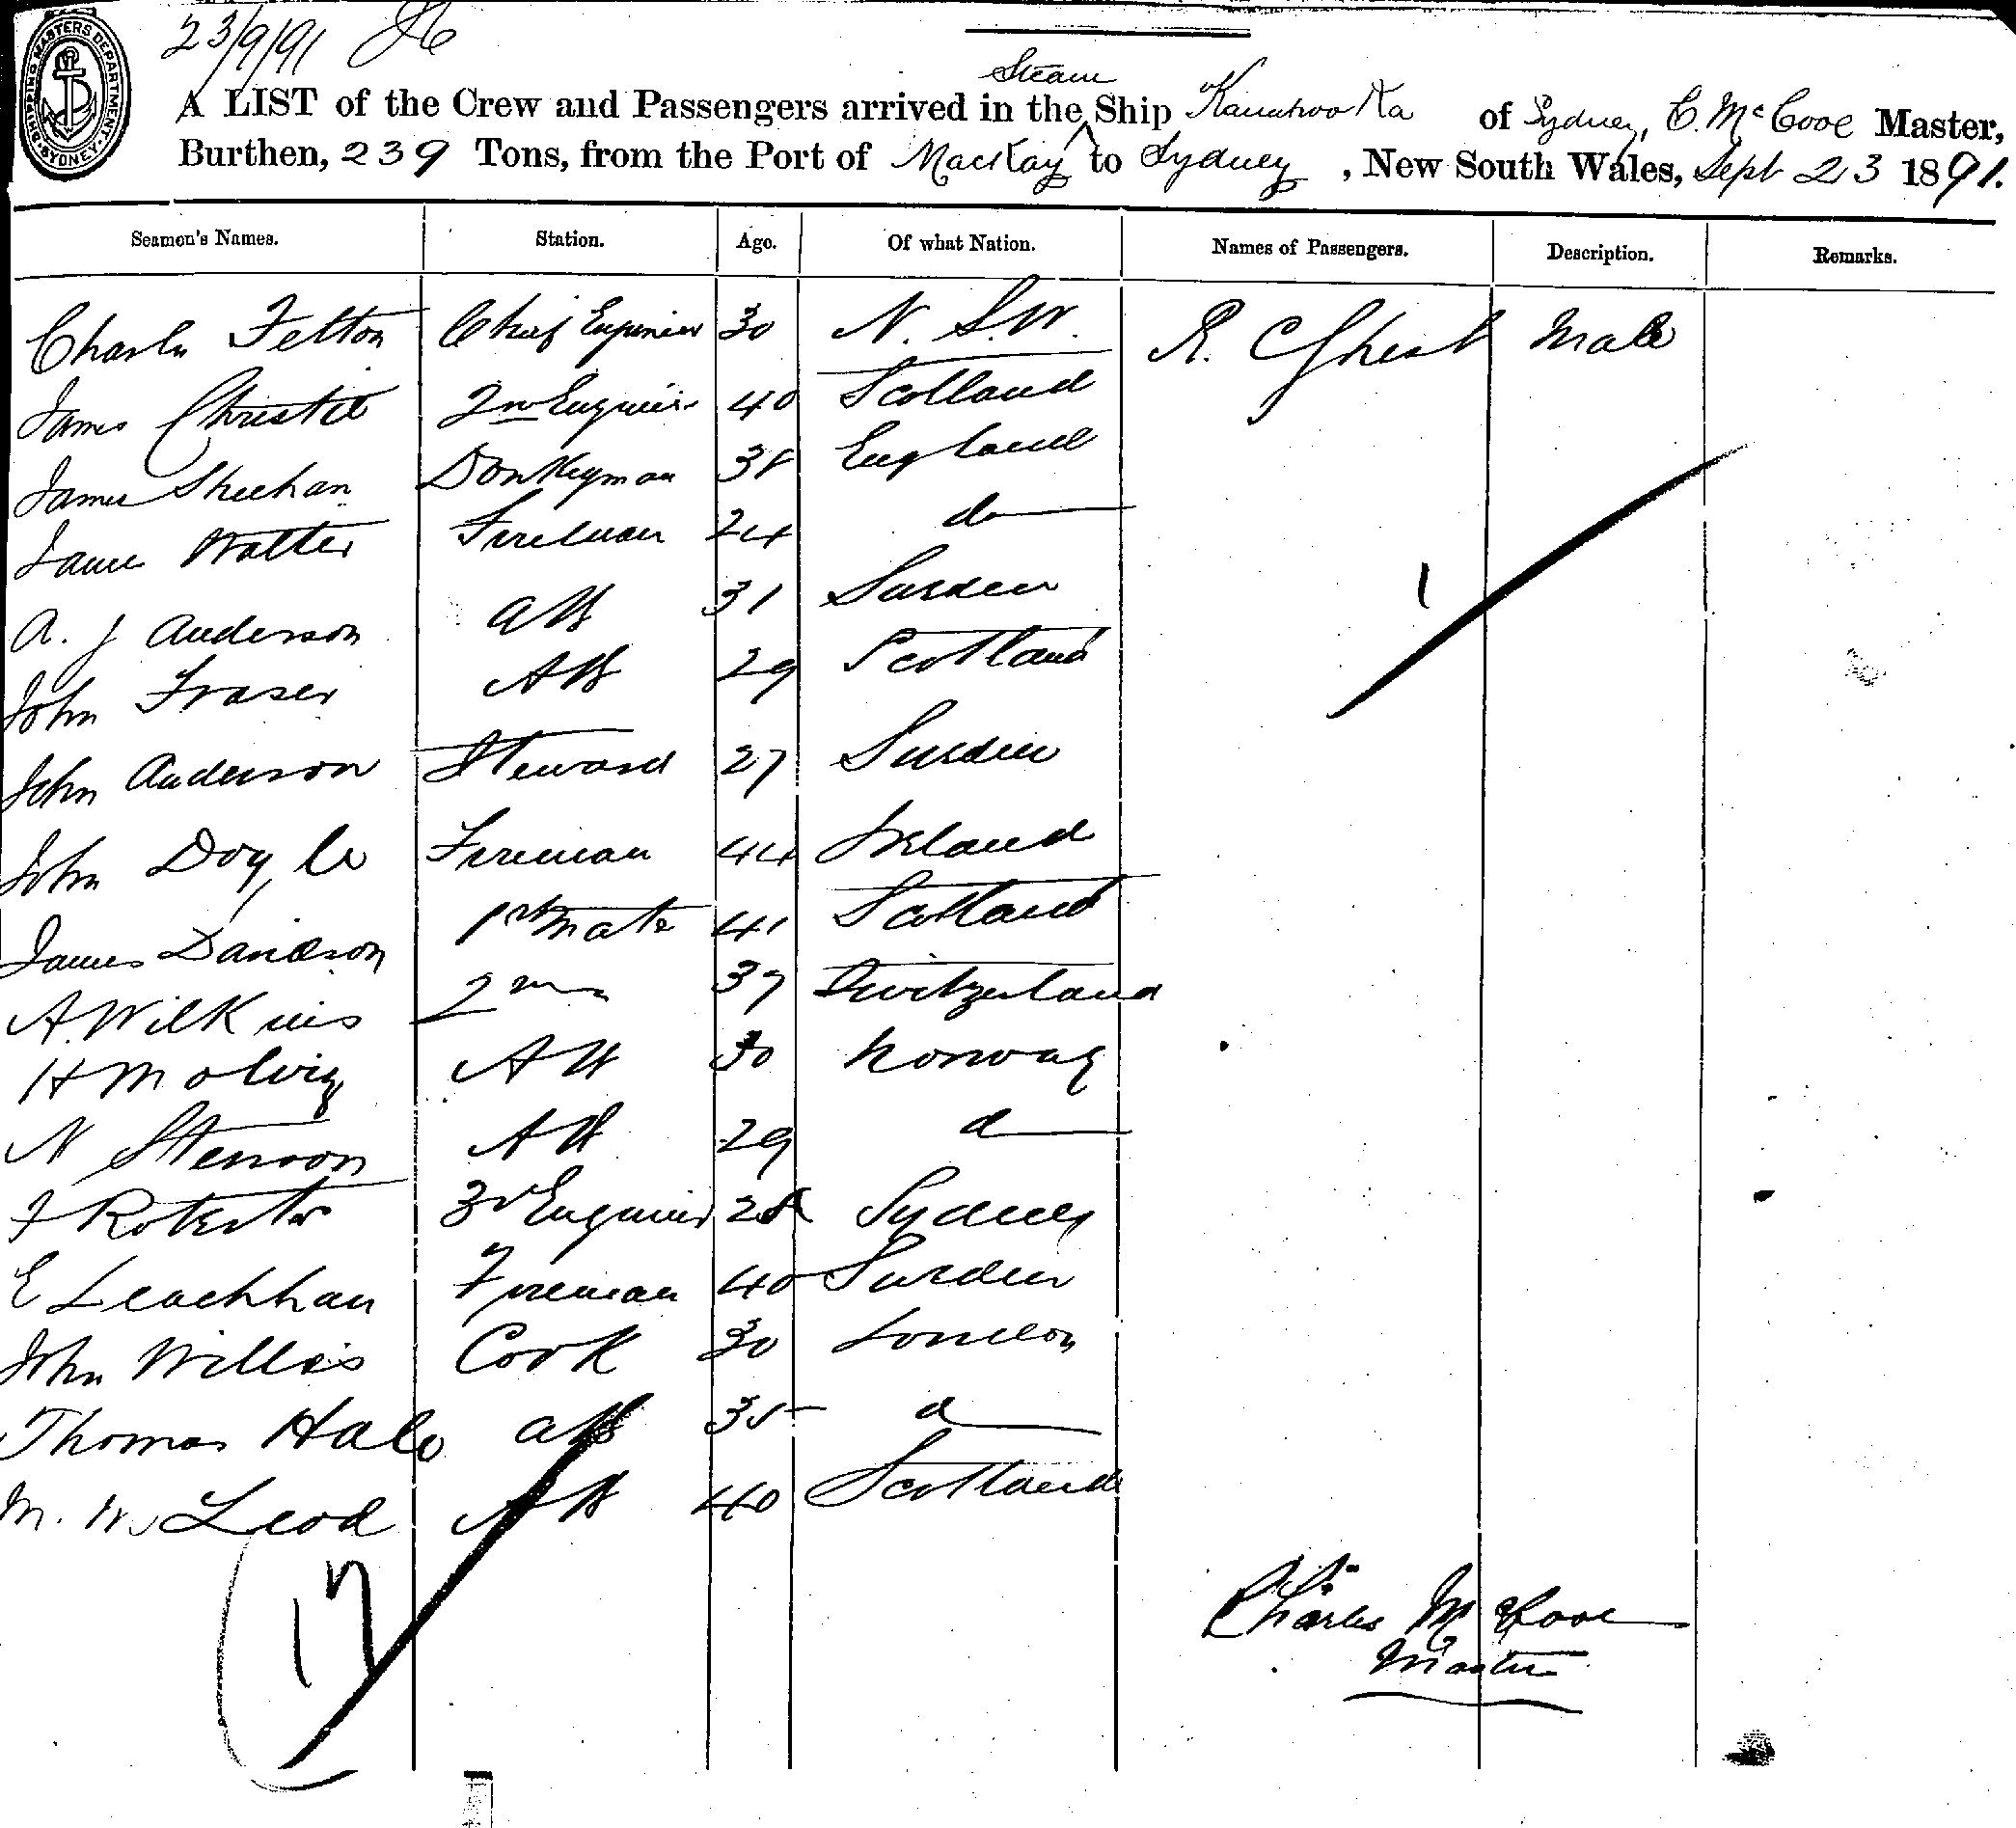 SHIPPING MASTERS DEPARTMENT
SYDNEY
23/9/91
Steam
A LIST of the Crew and Passengers arrived in the Ship Kanahooka of Sydney, C. McCooe Master,
Burthen, 239 Tons, from the Port of Mackay to Sydney, New South Wales, Sept 23 1891.
Seamen's Names. Station. Age. Of what Nation. Names of Passengers. Description. Remarks.
Charles Felton Chief Engineer 30 N.S.W. R. Ghest Male
James Christie 2nd Engineer 40 Scotland
James Sheehan Donkeyman 38 England
James Walter Fireman 24 do
A. J Anderson AB 31 Sweden
John Fraser AB 29 Scotland
John Anderson Steward 27 Sweden
John Doyle Fireman 44 Ireland
James Davidson 1st Mate 41 Scotland
A. Wilkins 2nd 37 Switzerland
H Molvig AB 30 Norway
N Stenson AB 29 do
Roberts 3rd Engineer 28 Sydney
E Leachhan Fireman 40 Sweden
John Willis Cook 30 London
Thomas Hale AB 35 do
M. Mc Leod AB 40 Scotland
1
17
Charles McCooe
Master